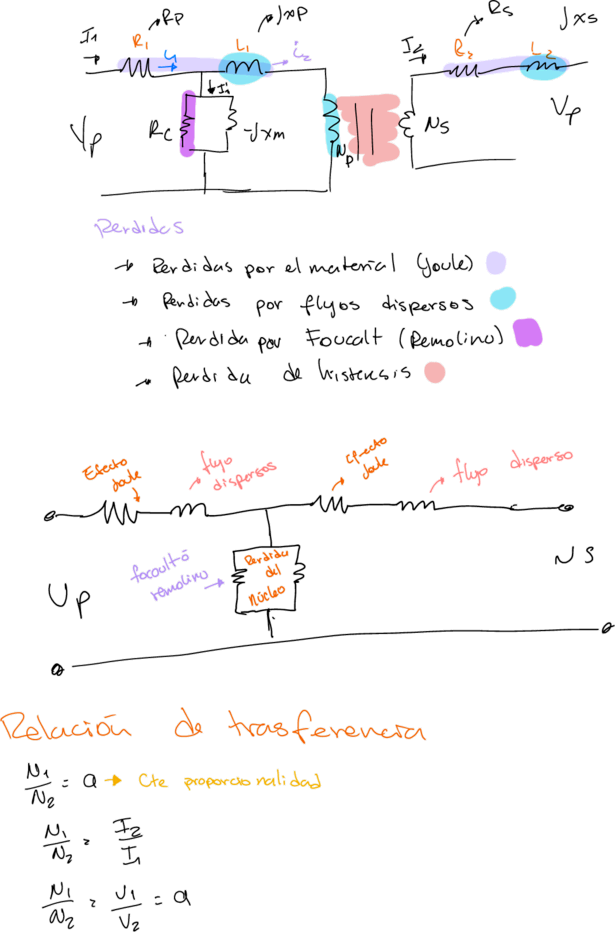 Rp
Jxp
Rs
Jxs
I1
R1
L1
L1
i2
I2
R2
L2
Vp
Rc
-Jxm
Np
Ns
Vp
Perdidas
→ Perdidas por el material (Joule)
→ Perdidas por flujos dispersos
→ Perdida por Foucalt (Remolino)
→ Perdida de histeresis
Efecto Joule
flujo dispersos
Efecto Joule
flujo disperso
focoultó remolino
Perdida del Núcleo
Up
NS
Relación de trasferencia
N1/N2 = a → Cte proporcionalidad
N1/N2 = I2/I1
N1/N2 = U1/V2 = a